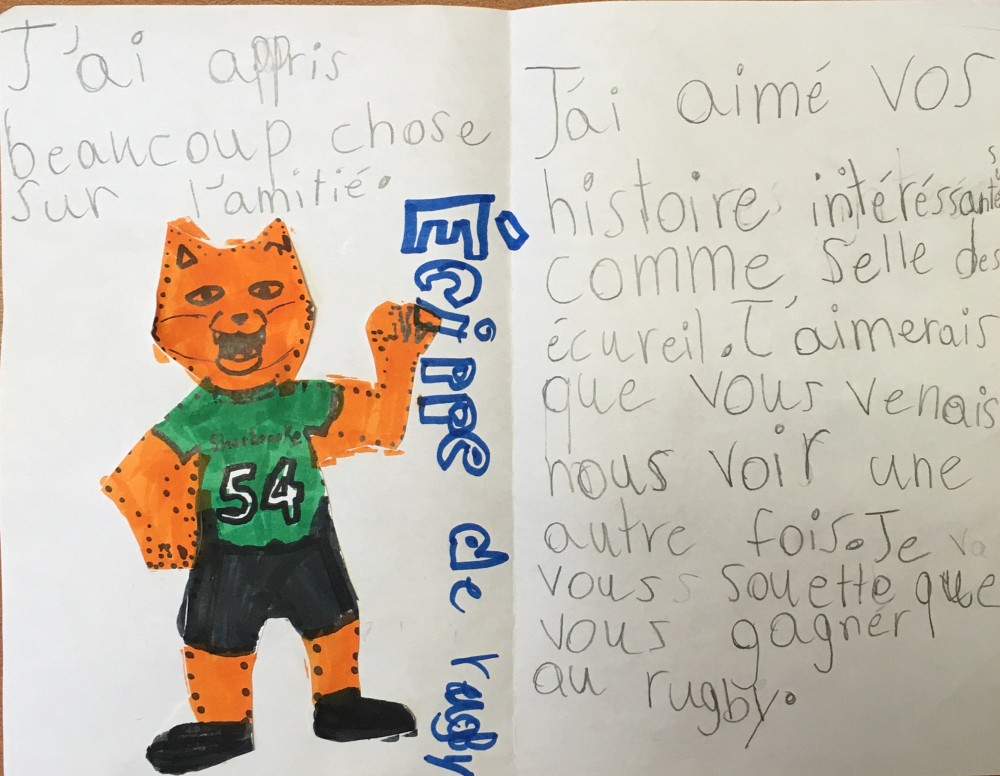 J'ai appris
beaucoup chose
sur l'amitié.
Écippe de rugby
Sherbrooke
54
J'ai aimé vos
histoire intéréssante
comme selle des
écureil. J'aimerais
que vous venais
nous voir une
autre fois. Je
vous souette que
vous gagnér
au rugby.